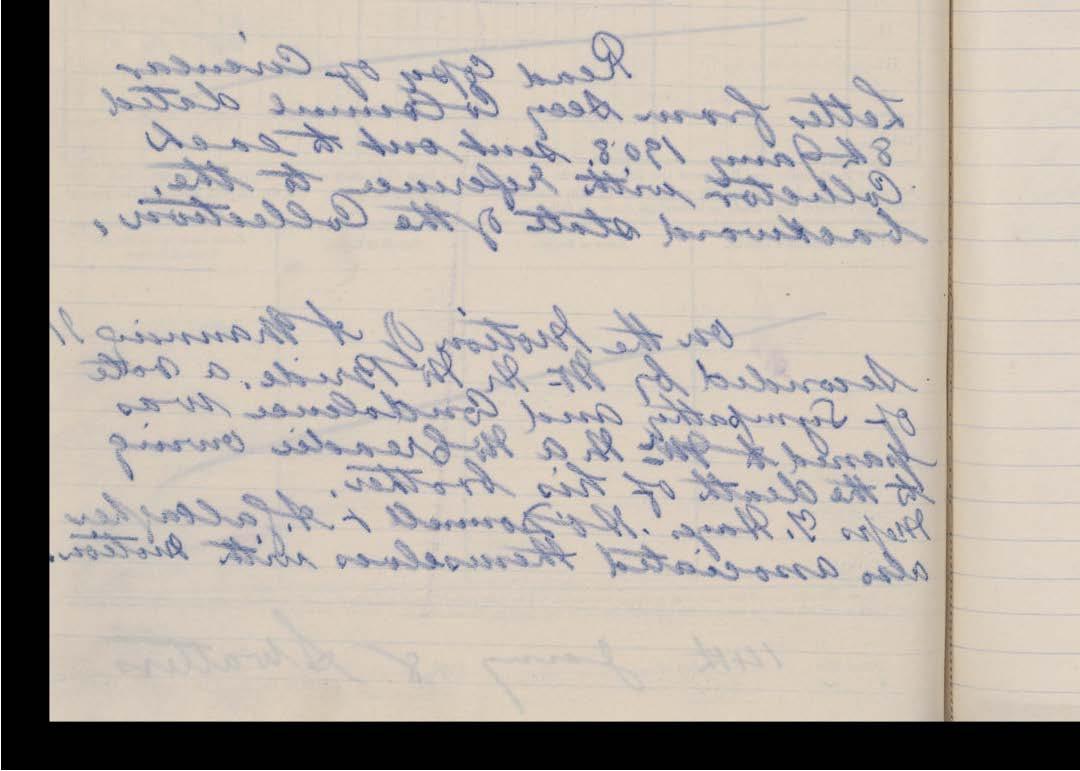 Read copy of Circular
Letter from Secy Co Council dated
8th Jany 1908. sent out to each
Collector with reference to the
backward state of the Collection.
On the Motion of Manning
Seconded by Mr McBride. a vote
of Sympathy and Condolence was
passed to Mr McCreadie owing
to the death of his brother.
Messrs T. Hays. O'Donnell & Gallagher
also associated themselves with motion.
14th Jany 8 Swatters